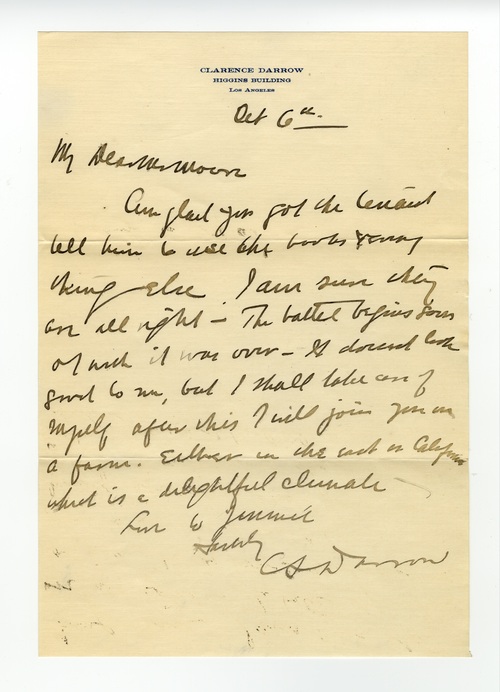 CLARENCE DARROW
HIGGINS BUILDING
LOS ANGELES
Oct 6th
My Dear Mr Moore
Am glad you got the tenant
tell him to use the books & every
thing else I am sure they
are all right – The battel begins soon
I wish it was over – It doesnt look
good to me, but I shall take care of
myself after this I will join you on
a farm. Either in the east or California
which is a delightful climate –
Love to Jimmie
C S Darrow